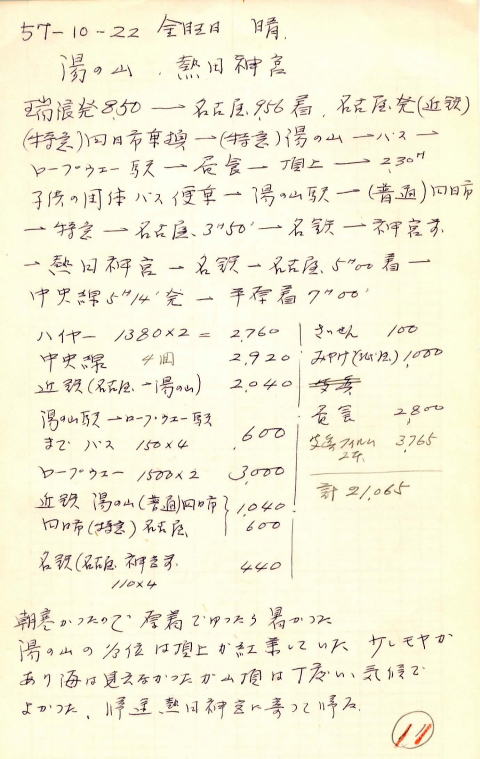 57-10-22 金旺日 晴.
湯の山 . 熱田神宮
瑞浪発 8,50 → 名古屋 9,56 着, 名古屋発(近鉄)
(特急)四日市乗換 →(特急)湯の山 → バス →
ロープウェー駅 → 昼食 → 頂上 → 2,30"
子供の団体バス便車 → 湯の山駅 →(普通)四日市
→ 特急 → 名古屋, 3"50' → 名鉄 → 神宮前
→ 熱田神宮 → 名鉄 → 名古屋, 5"00 着 →
中央線 5"14' 発 → 着 7"00'
ハイヤー 1380×2 = 2,760
中央線 4回 2,920
近鉄(名古屋→湯の山) 2,040
湯の山駅→ロープウェー駅
まで バス 150×4 600
ロープウェー 1500×2 3,000
近鉄 湯の山(普通)四日市 1,040
四日市(特急)名古屋 600
名鉄(名古屋 神宮前 440
110×4
さいせん 100
みやげ 1,000
昼食 2,800
フィルム 3,765
2本
計 21,065
朝寒かったので 厚着でゆったら 暑かった
湯の山の 位は頂上が紅葉していた
あり海は見えなかったが山頂は丁度いい気候で
よかった, 帰途熱田神宮に寄って帰る.
11